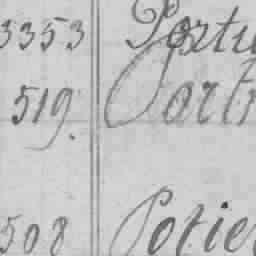 3353 Portu
519. Partr
508 Potie